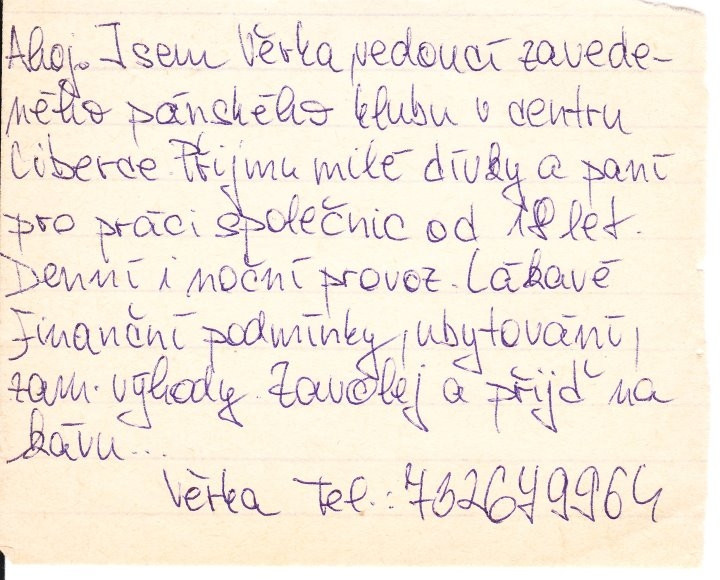 Ahoj. Jsem Věrka, vedoucí zavede-
ného pánského klubu v centru
Liberce. Přijmu milé dívky a paní
pro práci společnic od 18 let.
Denní i noční provoz. Lákavé
finanční podmínky, ubytování,
zam. výhody. Zavolej a přijď na
kávu...
Věrka Tel.: 732649964